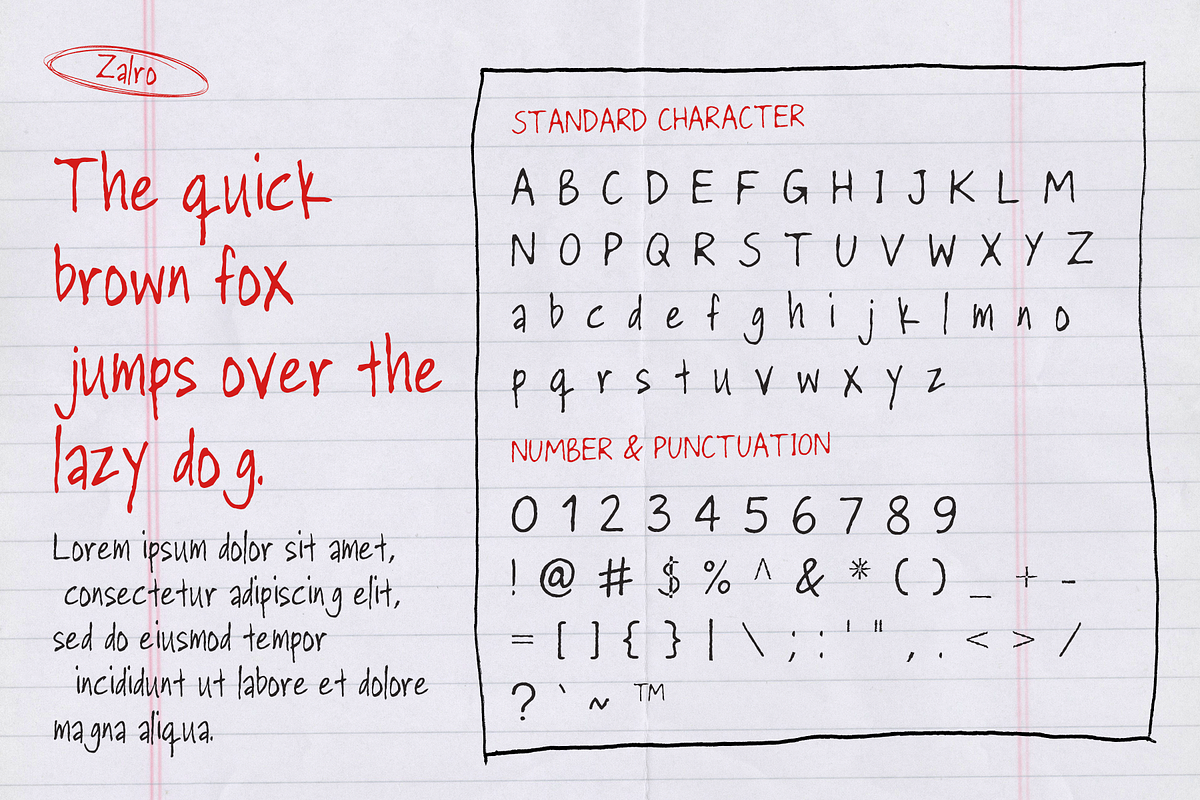 Zalro
The quick
brown fox
jumps over the
lazy dog.
Lorem ipsum dolor sit amet,
consectetur adipiscing elit,
sed do eiusmod tempor
incididunt ut labore et dolore
magna aliqua.
STANDARD CHARACTER
A B C D E F G H I J K L M
N O P Q R S T U V W X Y Z
a b c d e f g h i j k l m n o
p q r s t u v w x y z
NUMBER & PUNCTUATION
0 1 2 3 4 5 6 7 8 9
! @ # $ % ^ & * ( ) _ + -
= [ ] { } | \ ; : ' " , . < > /
? ` ~ ™